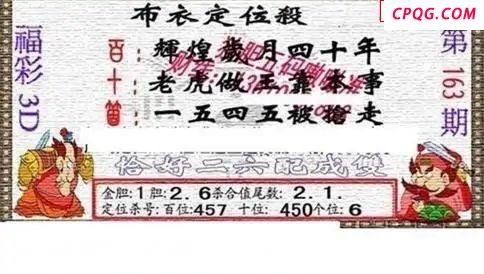 CPQG.COM
布衣定位殺
福彩3D
第163期
百：輝煌歲月四十年
十：老虎做王靠本事
笛：一五四五被搶走
恰好二六配成雙
金胆:1胆:2.6杀合值尾数:2.1.
定位杀号:百位:457 十位:450个位:6